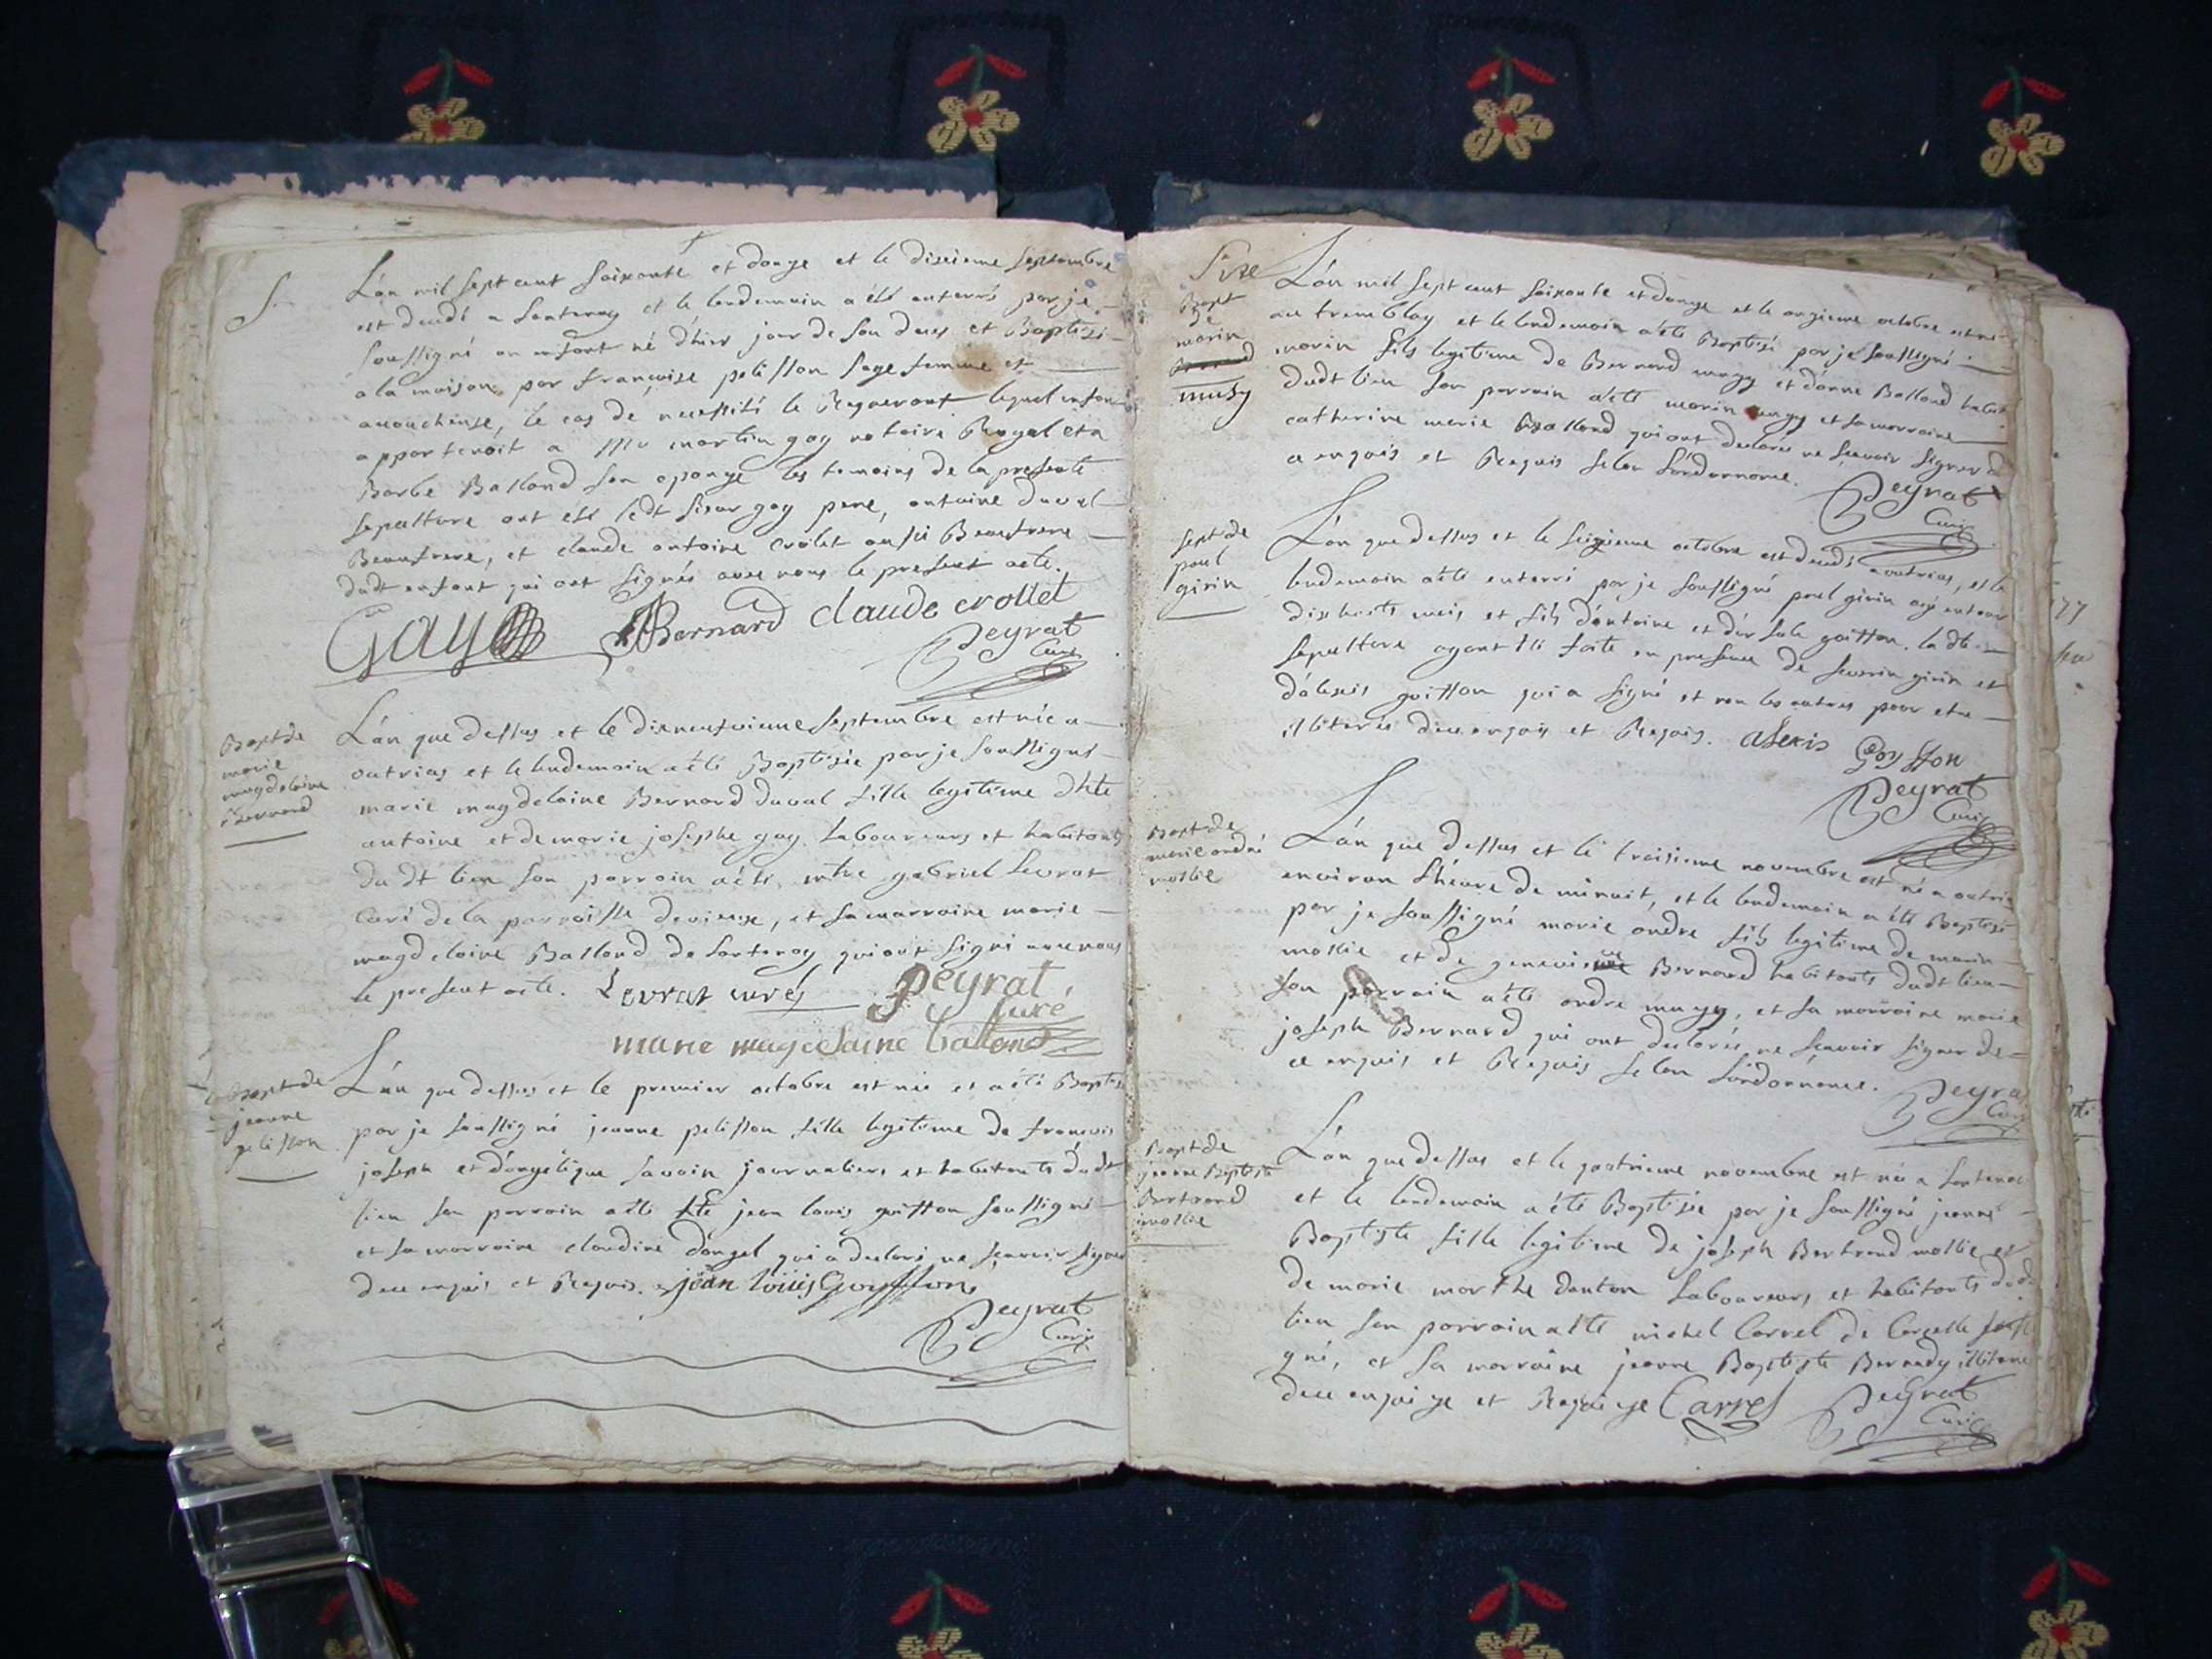 L'an mil sept cent soixante et douze et le dixieme septembre
est decedé a Lantenay et le lendemain a été enterré par je
soussigné un enfant né d'hier jour de son deces et Baptisé
a la maison par françoise pelisson sage femme et
acoucheuse, le cas de necessité le Requerant lequel enfant
appartenoit a Me martin gay notaire Royal et a
Barbe Balland son epouze les temoins de la presente
sepulture ont été ledt sieur gay pere, antoine duval
Beaufrere, et claude antoine crolet aussi Beaufrere
dudt enfant qui ont signés avec nous le present acte.
Gay Bernard claude crollet
Peyrat
Curé
Bapt de
marie
magdelaine
Bernard
L'an que dessus et le dixneufvieme septembre est née a
outriaz et le lendemain a été Baptisée par je soussigné
marie magdelaine Bernard duval fille legitime d'hte
antoine et de marie josephe gay Laboureurs et habitants
du dt lieu son parrain a été mtre gabriel Levrat
Curé de la parroisse de vieuge, et sa marraine marie
magdelaine Balland de Lantenay qui ont signé avec nous
le present acte. Levrat curéz Peyrat
Curé
marie magdelaine balland
Bapt de
jeanne
pelisson
L'an que dessus et le premier octobre est née et a été Baptisée
par je soussigné jeanne pelisson fille legitime de françois
joseph et d'angelique savoin journaliers et habitants dudt
lieu son parrain a été hte jean louis guitton soussigné
et sa marraine claudine dangel qui a declaré ne sçavoir signer
de ce enquis et Requis. jean louis Goyffon
Peyrat
Curé
Bapt
de
marin
musy
L'an mil sept cent soixante et douze et le onzieme octobre est né
au tremblay et le lendemain a été Baptisé par je soussigné
marin fils legitime de Bernard muzy et d'anne Balland habit
dudt lieu son parrain a été marin muzy et sa marraine
catherine marie Balland qui ont declarés ne sçavoir signer d
ce enquis et Requis selon l'ordonnance.
Peyrat
Curé
Sept de
paul
girin
L'an que dessus et le seizieme octobre est decedé a outriaz, et le
lendemain a été enterré par je soussigné paul girin agé environ
dix huits mois et fils d'antoine et d'ursule goiffon. la dte
sepulture ayant été faite en presence de severin girin et
d'alexis goiffon qui a signé et non les autres pour etre
illiterés de ce enquis et Requis. Alexis Goyffon
Peyrat
Curé
Bapt de
marie andré
mollie
L'an que dessus et le troisieme novembre est né a outria
environ l'heure de minuit, et le lendemain a été Baptisé
par je soussigné marie andré fils legitime de marin
mollie et de genevieve Bernard habitants dudt lieu
son parrain a été andré muzy, et sa marraine marie
joseph Bernard qui ont declarés ne scavoir signer de
ce enquis et Requis selon l'ordonnance. Peyra
Curé
Bapt de
jeanne Baptiste
Bertrand
mollie
L'an que dessus et le quatrieme novembre est née a Lantenai
et le lendemain a été Baptisée par je soussigné jeanne
Baptiste fille legitime de joseph Bertrand mollie et
de marie marthe danton Laboureurs et habitants dudt
lieu son parrain a été michel Carrel de Corcelle soussi
gné, et sa marraine jeanne Baptiste Bernady illiterée
de ce enquize et Requize Carrel Peyrat
Curé